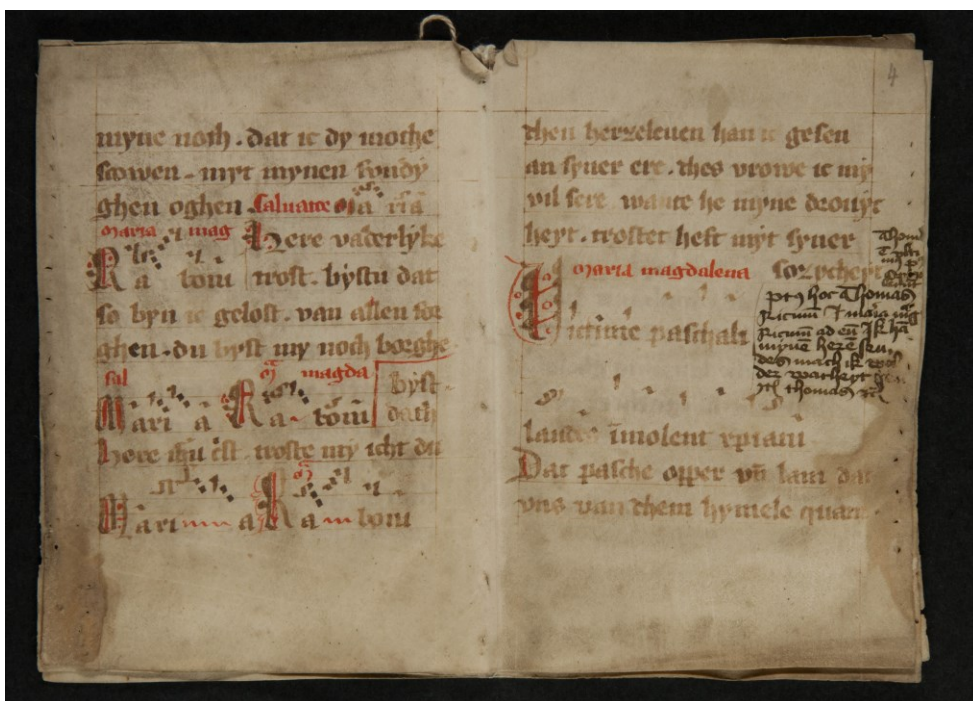 myne noth. dat ic dy mothe
scowen. myt mynen sondy
ghen oghen. saluator Maria
maria mag Here vaderlyke
Ra boni trost. bystu dat
so byn ic gelost. van allen sor
ghen. du byst my noch borghe
sal mā magda byst
Mari a Ra boni dath
here ihū cst. troste my icht du
Mari a Ra boni
4
then herzeleuen han ic gesen
an syner ere. thes vrowe ic my
vil sere. wante he myne drouyc
heyt. trostet heft myt syner
maria magdalena sorycheyt
Victime paschali
laudes īmolent xpiani
Dat pasche opper vn̄ lam dat
vns van them hymele quam
hoc Thomas
ad eū Ik hā
mynē herē sen
des mach ik wol
der warheyt
thomas